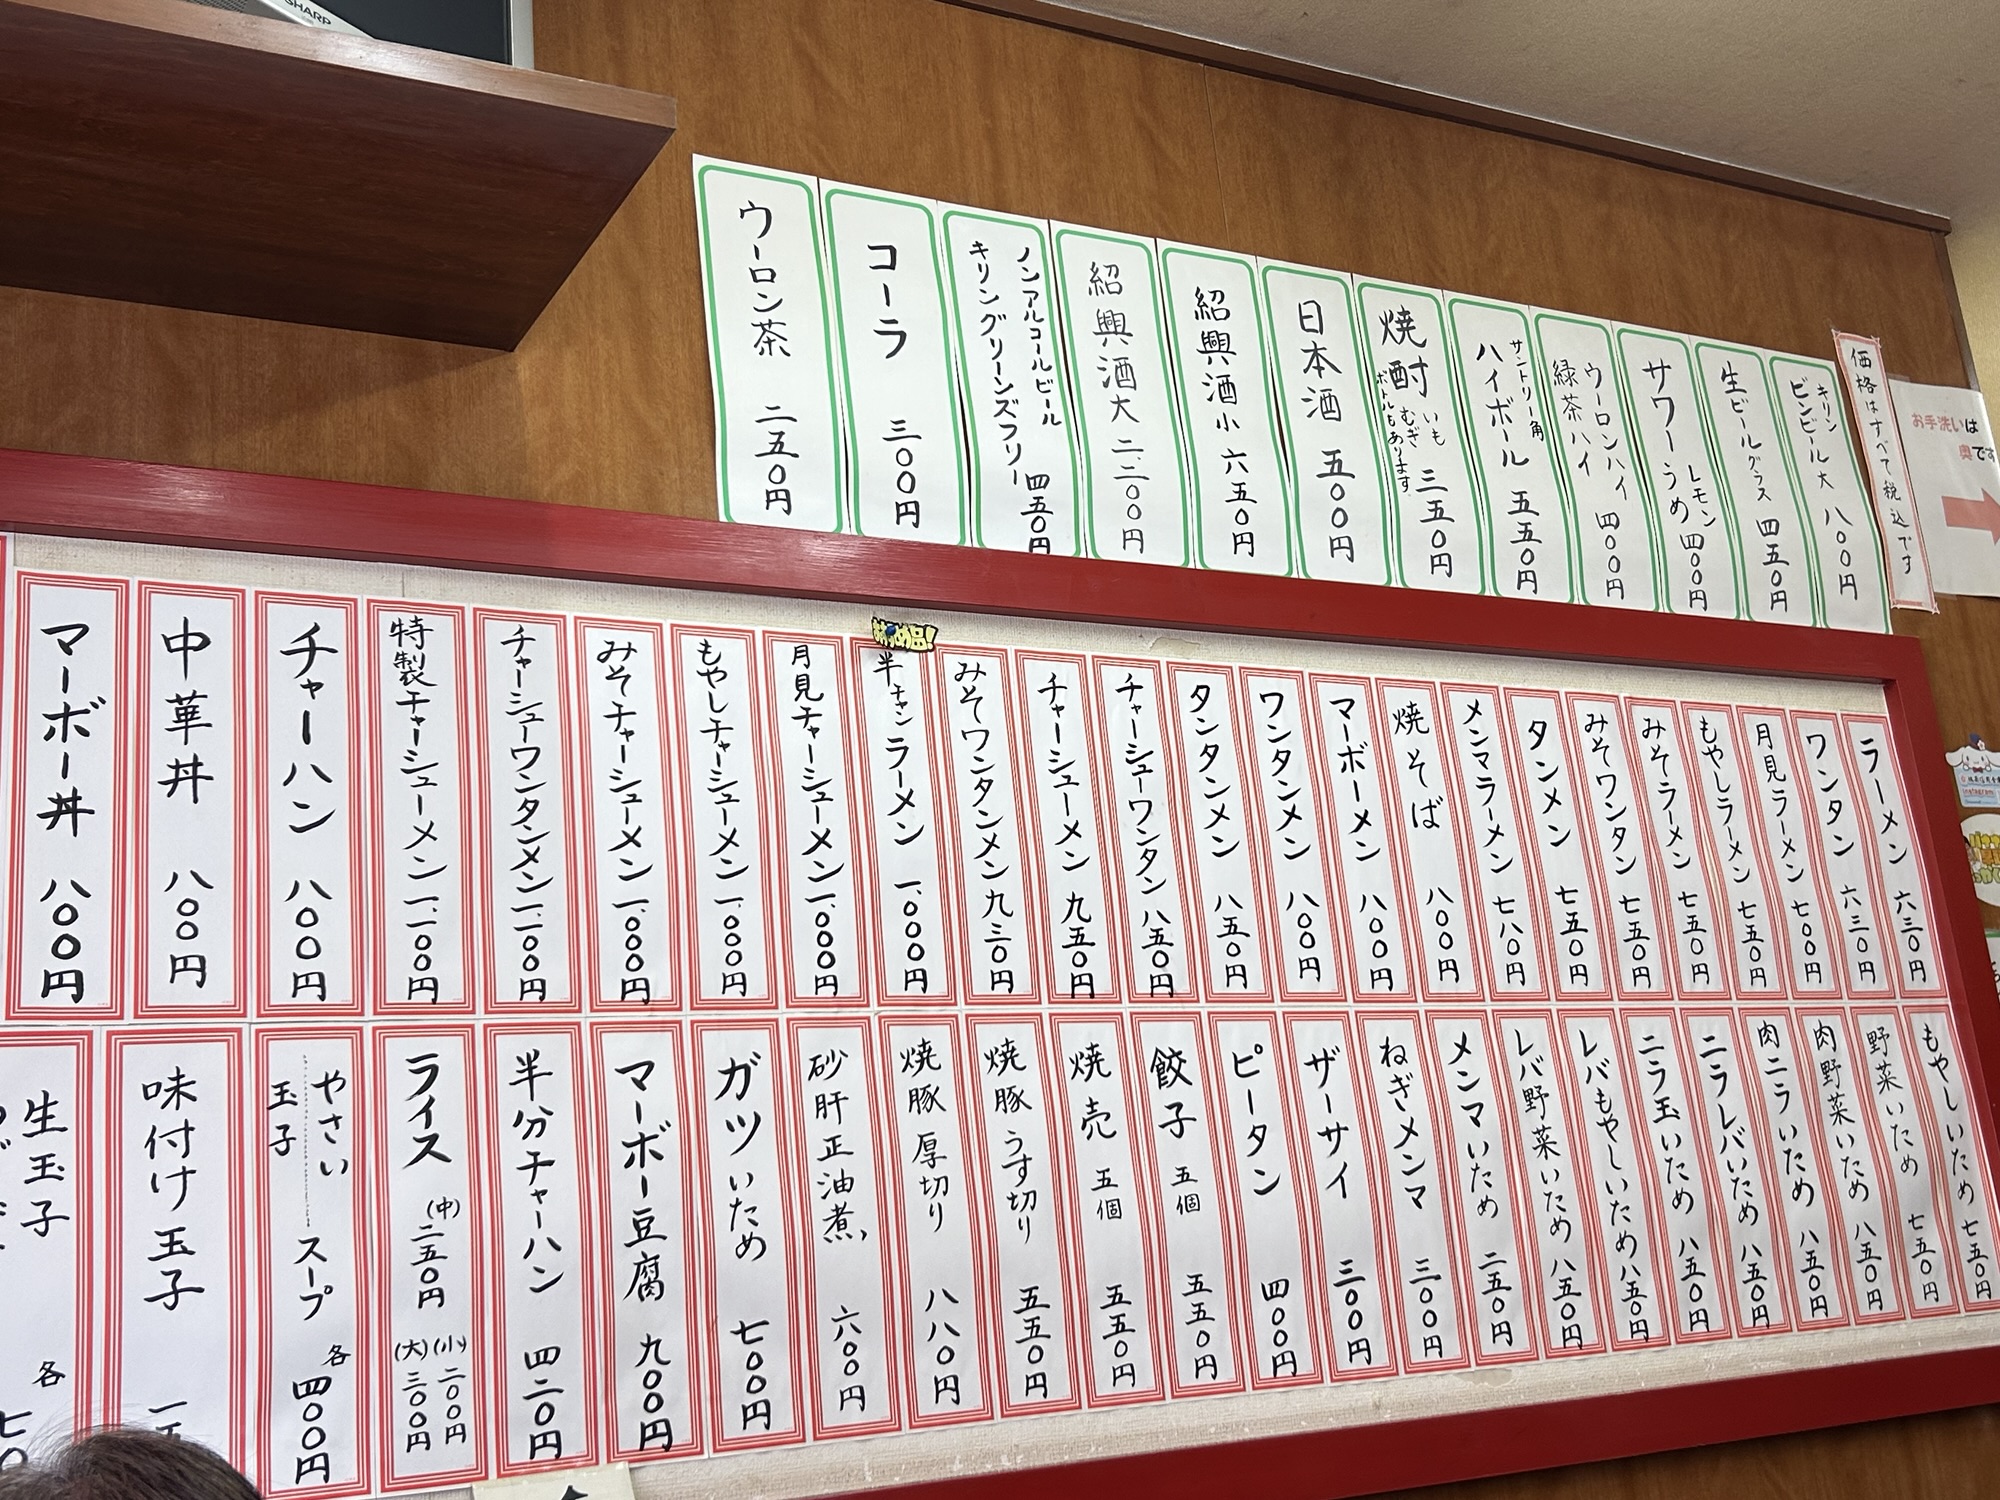 SHARP
価格はすべて税込です
お手洗いは
奥です
キリン
ビンビール大 八〇〇円
生ビールグラス 四五〇円
サワー レモン うめ 四〇〇円
ウーロンハイ
緑茶ハイ 四〇〇円
サントリー角
ハイボール 五五〇円
焼酎 いも むぎ 三五〇円
ボトルもあります
日本酒 五〇〇円
紹興酒小 六五〇円
紹興酒大 二、二〇〇円
ノンアルコールビール
キリングリーンズフリー 四五〇円
コーラ 三〇〇円
ウーロン茶 二五〇円
ラーメン 六三〇円
ワンタン 六三〇円
月見ラーメン 七〇〇円
もやしラーメン 七五〇円
みそラーメン 七五〇円
みそワンタン 七五〇円
タンメン 七五〇円
メンマラーメン 七八〇円
焼そば 八〇〇円
マーボーメン 八〇〇円
ワンタンメン 八〇〇円
タンタンメン 八五〇円
チャーシューワンタン 八五〇円
チャーシューメン 九五〇円
みそワンタンメン 九三〇円
おすすめ品!
半チャンラーメン 一、〇〇〇円
月見チャーシューメン 一、〇〇〇円
もやしチャーシューメン 一、〇〇〇円
みそチャーシューメン 一、〇〇〇円
チャーシューワンタンメン 一、一〇〇円
特製チャーシューメン 一、一〇〇円
チャーハン 八〇〇円
中華丼 八〇〇円
マーボー丼 八〇〇円
もやしいため 七五〇円
野菜いため 七五〇円
肉野菜いため 八五〇円
肉ニラいため 八五〇円
ニラレバいため 八五〇円
ニラ玉いため 八五〇円
レバもやしいため 八五〇円
レバ野菜いため 八五〇円
メンマいため 二五〇円
ねぎメンマ 三〇〇円
ザーサイ 三〇〇円
ピータン 四〇〇円
餃子 五個 五五〇円
焼売 五個 五五〇円
焼豚 うす切り 五五〇円
焼豚 厚切り 八八〇円
砂肝正油煮 六〇〇円
ガツいため 七〇〇円
マーボー豆腐 九〇〇円
半分チャーハン 四二〇円
ライス (中) 二五〇円
(小) 二〇〇円
(大) 三〇〇円
やさい
玉子
スープ 各 四〇〇円
味付け玉子
生玉子
各 七〇